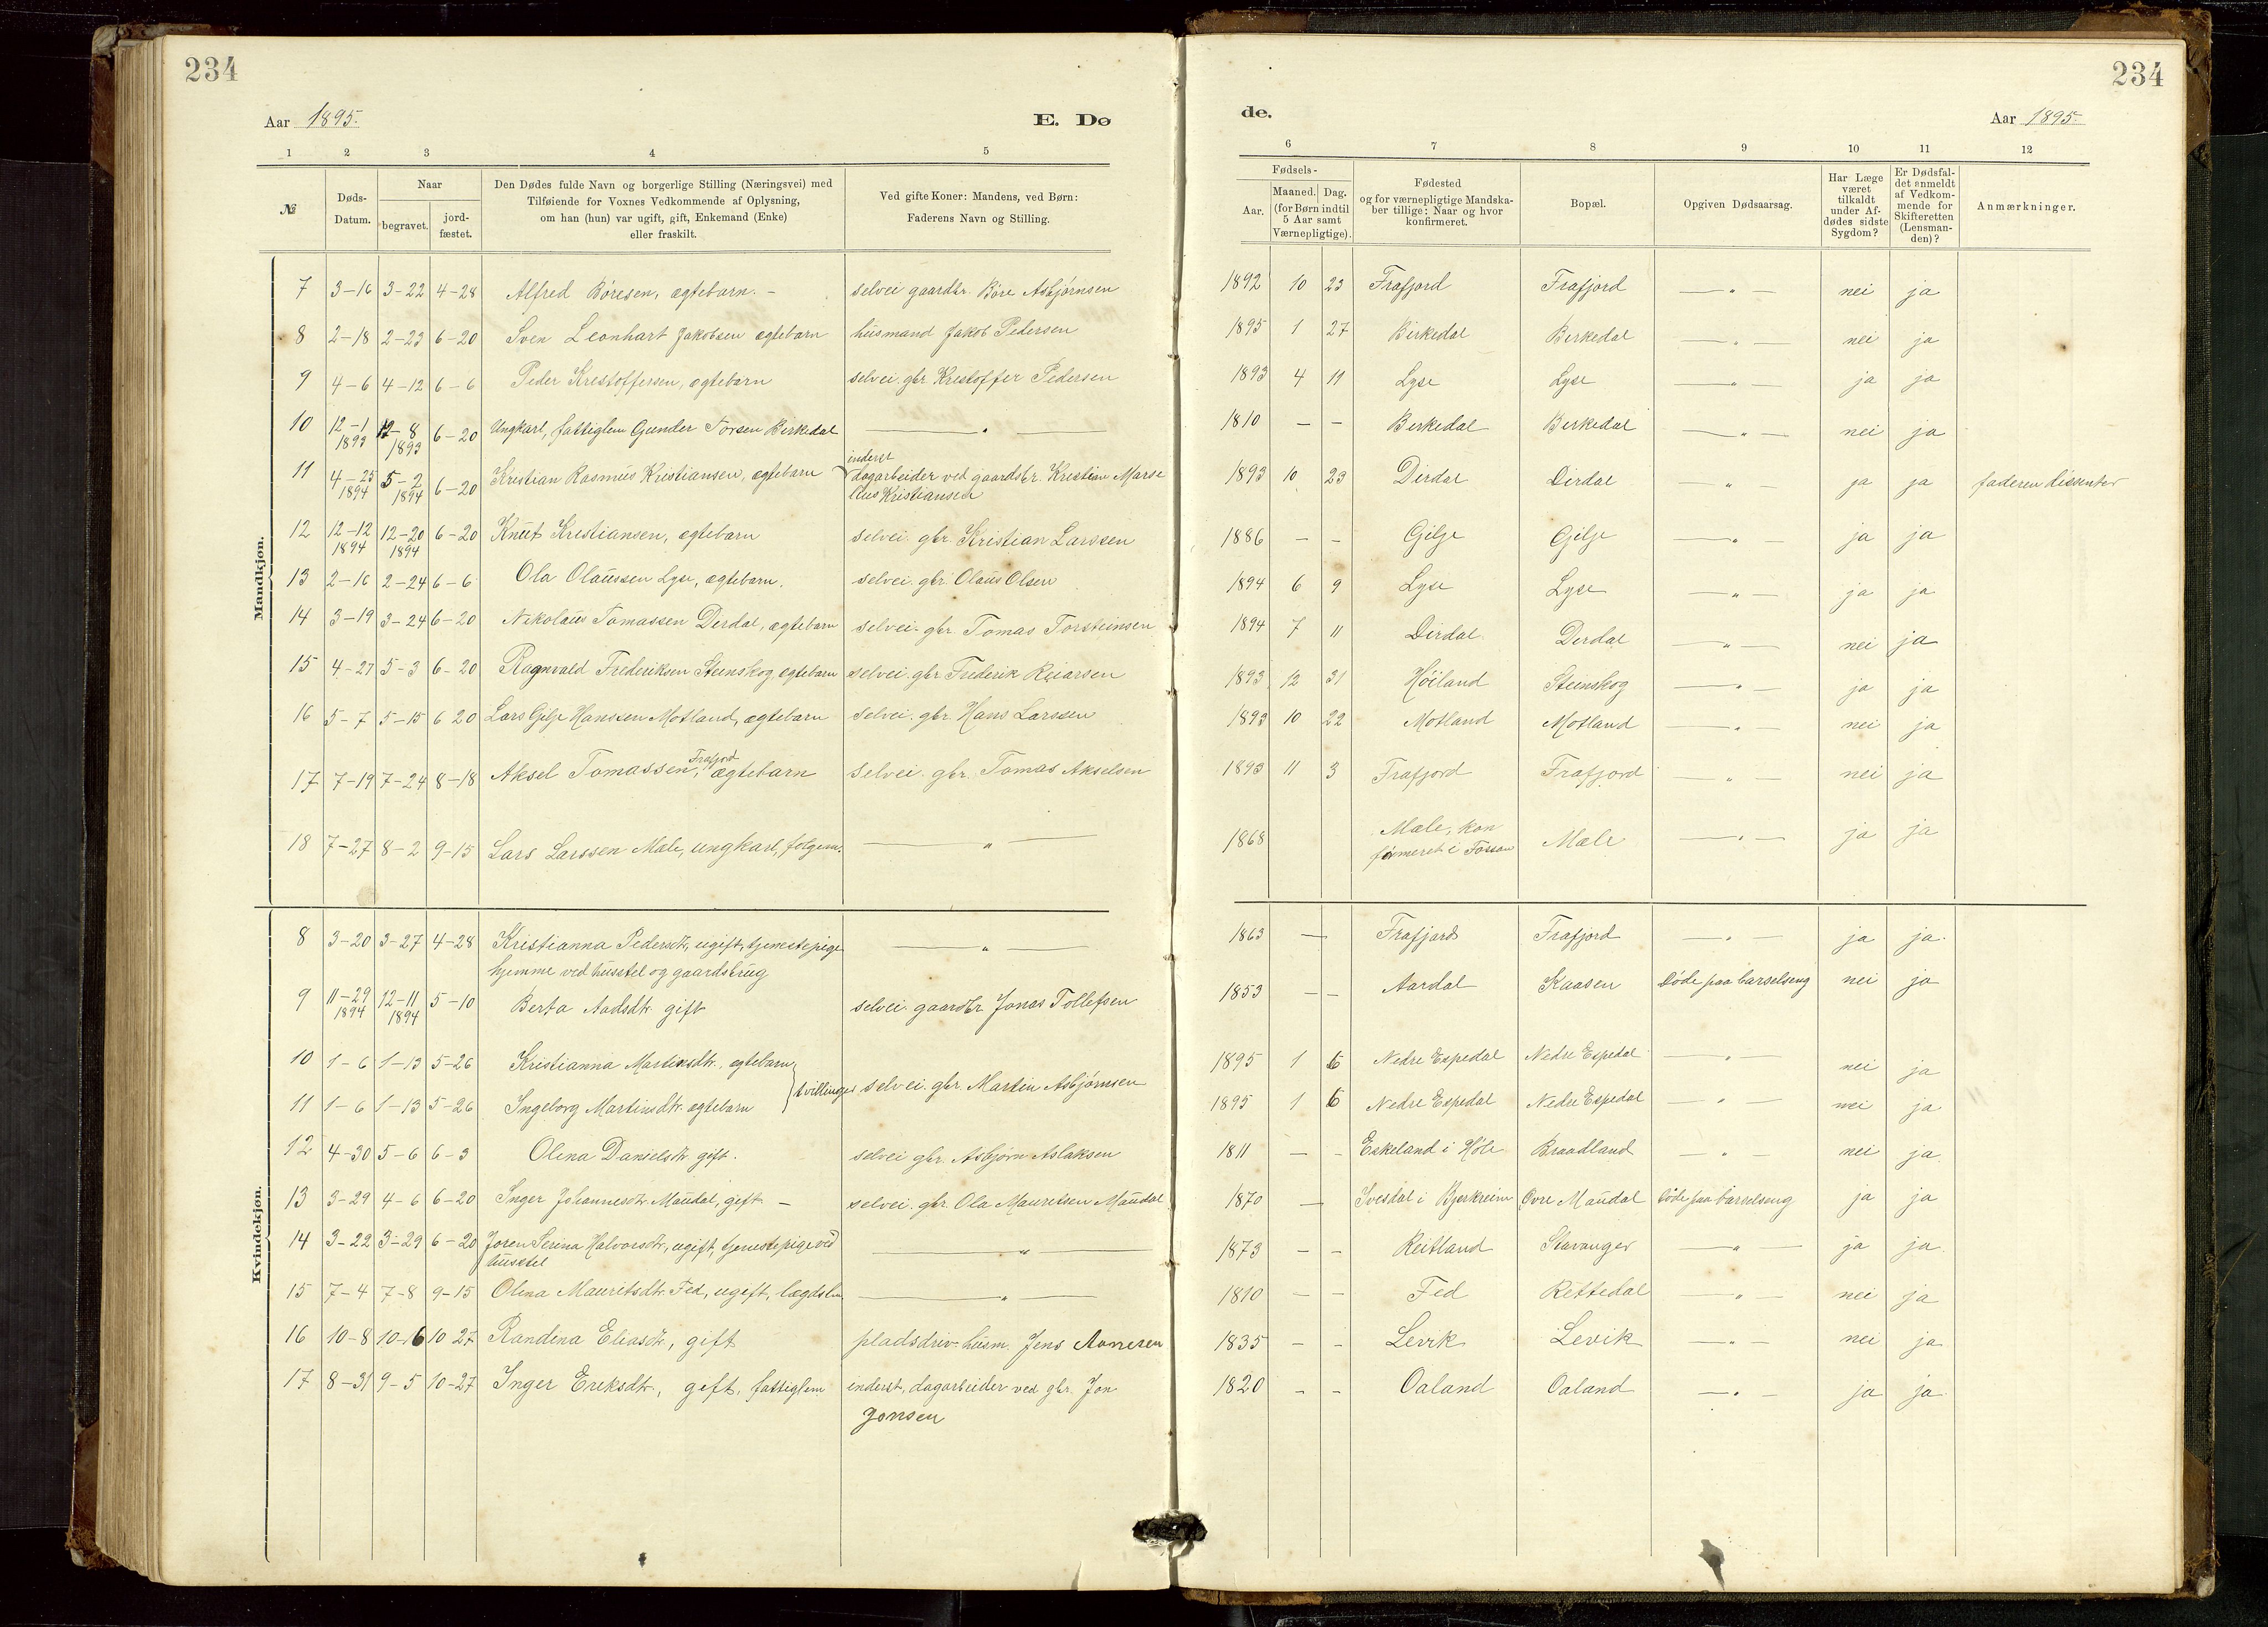 234
234
Aar 1895.
E. Dø
de.
Aar 1895.
1 2 3 4 5
6 7 8 9 10 11 12
№
Døds-Datum.
Naar
begravet.
jord-fæstet.
Den Dødes fulde Navn og borgerlige Stilling (Næringsvei) med
Tilføiende for Voxnes Vedkommende af Oplysning,
om han (hun) var ugift, gift, Enkemand (Enke)
eller fraskilt.
Ved gifte Koner: Mandens, ved Børn:
Faderens Navn og Stilling.
Fødsels-
Aar.
Maaned. Dag.
(for Børn indtil
5 Aar samt
Værnepligtige).
Fødested
og for værnepligtige Mandska-
ber tillige: Naar og hvor
konfirmeret.
Bopæl.
Opgiven Dødsaarsag.
Har Læge
været
tilkaldt
under Af-
dødes sidste
Sygdom?
Er Dødsfal-
det anmeldt
af Vedkom-
mende for
Skifteretten
(Lensman-
den)?
Anmærkninger.
Mandkjøn.
7 3-16 3-22 4-28 Alfred Børesen, ægtebarn. – selvei gaardbr. Børe Asbjørnsen 1892 10 23 Frafjord Frafjord — " — nei ja
8 2-18 2-23 6-20 Sven Leonhart Jakobsen ægtebarn husmand Jakob Pedersen 1895 1 27 Birkedal Birkedal — " — nei ja
9 4-6 4-12 6-6 Peder Kristoffersen, ægtebarn selvei. gbr. Kristoffer Pedersen 1893 4 11 Lyse Lyse — " — ja ja
10 12-1 1893 12-8 1893 6-20 Ungkarl, fattiglem Gunder Torsen Birkedal — " — 1810 – – Birkedal Birkedal — " — nei ja
11 4-25 1894 5-2 1894 6-20 Kristian Rasmus Kristiansen, ægtebarn inderst
dagarbeider ved gaardsbr. Kristian Marse
lius Kristiansen 1893 10 23 Dirdal Dirdal — " — ja ja faderen dissenter
12 12-12 1894 12-20 1894 6-20 Knut Kristiansen, ægtebarn selvei. gbr. Kristian Larssen 1886 – – Gilje Gilje — " — ja ja
13 2-16 2-24 6-6 Ola Olaussen Lyse, ægtebarn. selvei. gbr. Olaus Olsen 1894 6 9 Lyse Lyse — " — ja ja
14 3-19 3-24 6-20 Nikolaus Tomassen Dirdal, ægtebarn selvei. gbr. Tomas Torsteinsen 1894 7 11 Dirdal Dirdal — " — nei ja
15 4-27 5-3 6-20 Ragnvald Frederiksen Steinskog ægtebarn selvei. gbr Frederik Reiarsen 1893 12 31 Høiland Steinskog — " — ja ja
16 5-7 5-15 6 20 Lars Gilje Hanssen Motland, ægtebarn selvei. gbr. Hans Larssen 1893 10 22 Motland Motland — " — nei ja
17 7-19 7-24 8-18 Aksel Tomassen Frafjord, ægtebarn selvei. gbr. Tomas Akselsen 1893 11 3 Frafjord Frafjord — " — nei ja
18 7-27 8-2 9-15 Lars Larssen Mæle, ungkarl, følgem. — " — 1868 Mæle, kon
firmeret i Fossan Mæle — " — ja ja
Kvindekjøn.
8 3-20 3-27 4-28 Kristianna Pedersdtr, ugift, tjenestepige
hjemme ved husstel og gaardsbrug — " — 1863 — Frafjord Frafjord — " — ja ja.
9 11-29 1894 12-11 1894 5-10 Berta Aadsdtr. gift selvei. gaardbr Jonas Tollefsen 1853 – – Aardal Kaasen Døde paa barselseng nei ja
10 1-6 1-13 5-26 Kristianna Martinsdtr., ægtebarn } tvillinger selvei. gbr. Martin Asbjørnsen 1895 1 6 Nedre Espedal Nedre Espedal — " — nei ja
11 1-6 1-13 5-26 Ingeborg Martinsdtr. ægtebarn 1895 1 6 Nedre Espedal Nedre Espedal — " — nei ja
12 4-30 5-6 6-3 Olena Danielsdtr. gift. selvei gbr. Asbjørn Aslaksen 1811 – – Eskeland i Høle Braadland — " — nei ja.
13 3-29 4-6 6-20 Inger Johannesdtr. Maudal, gift – selvei. gbr. Ola Mauritsen Maudal 1870 — Ivesdal i Bjerkreim Øvre Maudal Døde paa barselseng ja ja
14 3-22 3-29 6-20 Joren Serina Halvorsdtr, ugift, tjenestepige ved
husstel — " — 1873 – – Reitland Stavanger — " — ja ja.
15 7-4 7-8 9-15 Olena Mauritsdtr. Fed, ugift, lægdslem — " — 1810 – – Fed Rettedal — " — nei ja
16 10-8 10-16 10 27 Randina Eliasdtr, gift pladsdriv. husm. Jens Aanesen 1835 – – Levik Levik — " — nei ja
17 8-31 9-5 10-27 Inger Eriksdtr., gift, fattiglem inderst, dagarbeider ved gbr. Jon
Jonsen 1820 – – Oaland Oaland — " — ja ja